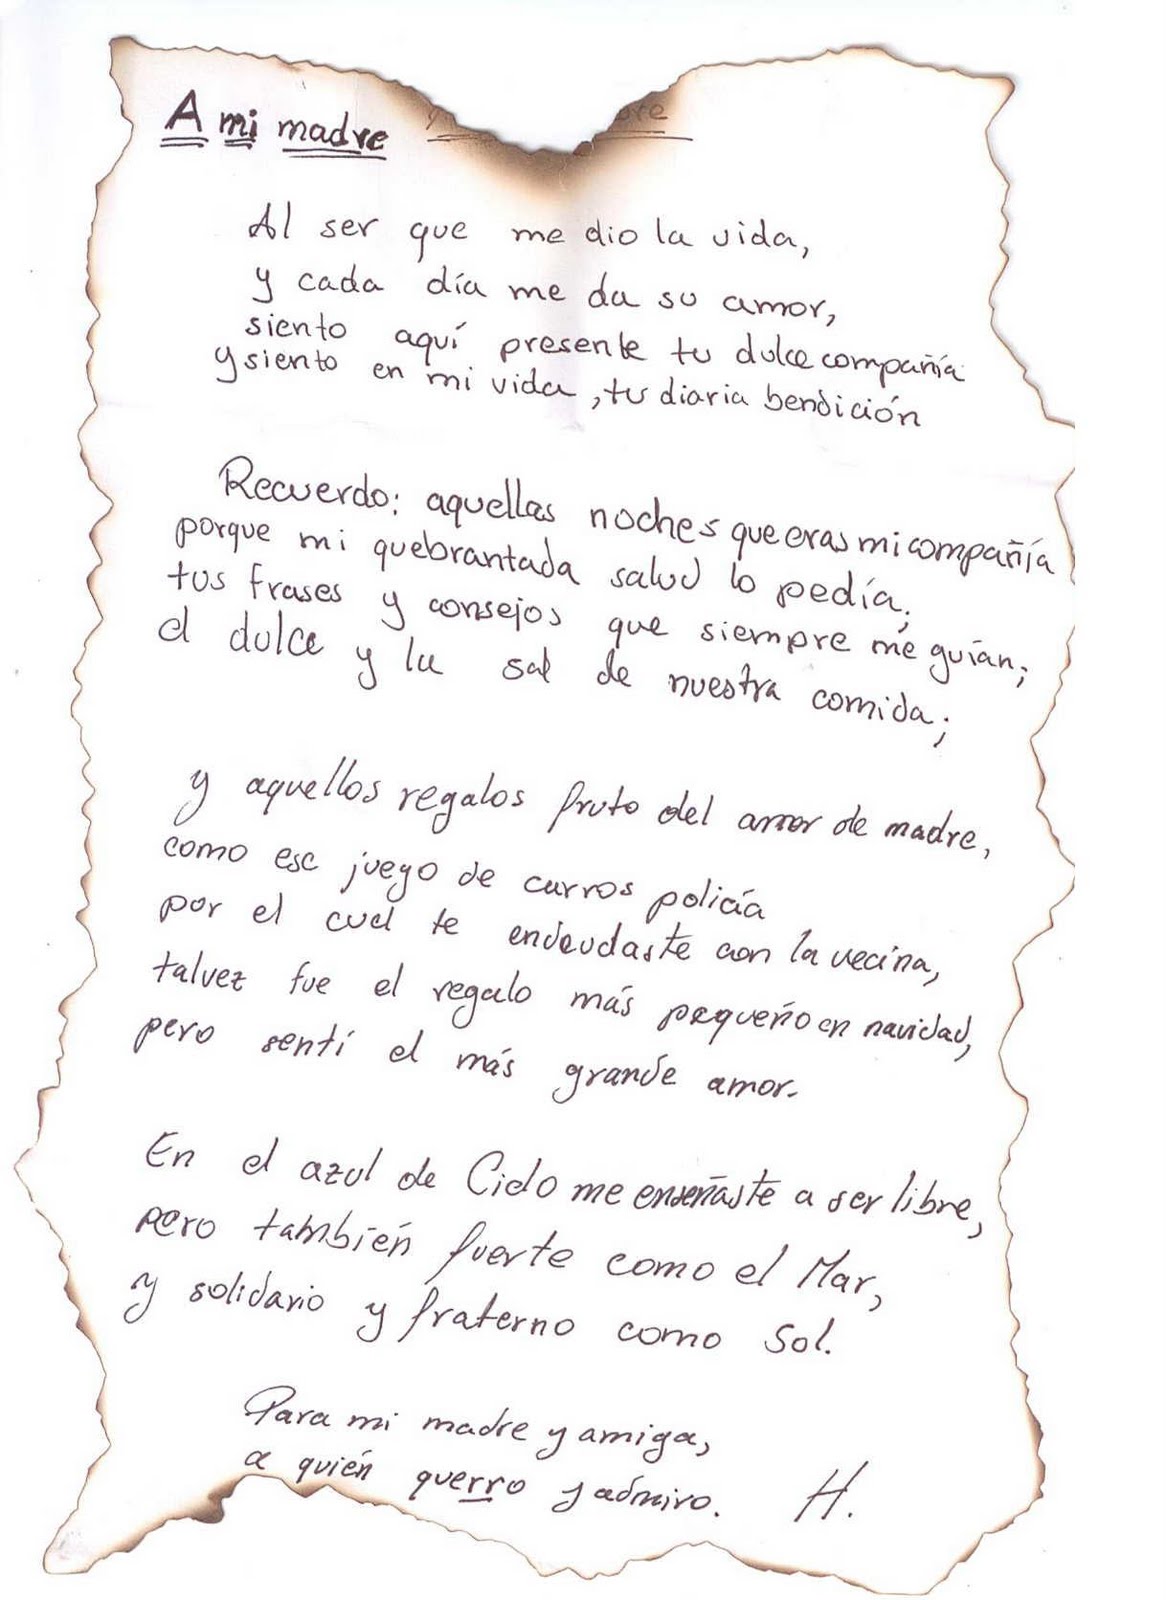 A mi madre
Al ser que me dio la vida,
y cada día me da su amor,
siento aquí presente tu dulce compañía
y siento en mi vida, tu diaria bendición
Recuerdo: aquellas noches que eras mi compañía
porque mi quebrantada salud lo pedía;
tus frases y consejos que siempre me guían;
el dulce y la sal de nuestra comida;
y aquellos regalos fruto del amor de madre,
como ese juego de carros policía
por el cual te endeudaste con la vecina,
talvez fue el regalo más pequeño en navidad,
pero sentí el más grande amor.
En el azul de Cielo me enseñaste a ser libre,
pero también fuerte como el Mar,
y solidario y fraterno como Sol.
Para mi madre y amiga,
a quién querro y admiro. H.